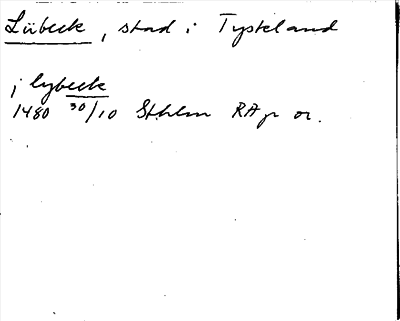 Lübeck, stad i Tyskland
i lybeck
1480 30/10 Sthlm RAp or.